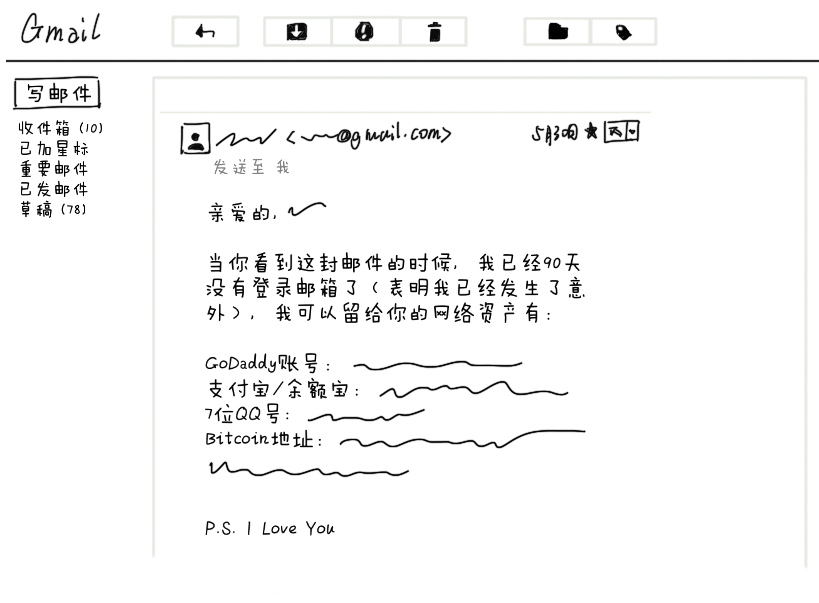 Gmail
写邮件
收件箱 (10)
已加星标
重要邮件
已发邮件
草稿 (78)
<@gmail.com>
5月3日
发送至 我
亲爱的,
当你看到这封邮件的时候, 我已经90天
没有登录邮箱了 (表明我已经发生了意
外), 我可以留给你的网络资产有:
GoDaddy账号:
支付宝/余额宝:
7位QQ号:
Bitcoin地址:
P.S. I Love You